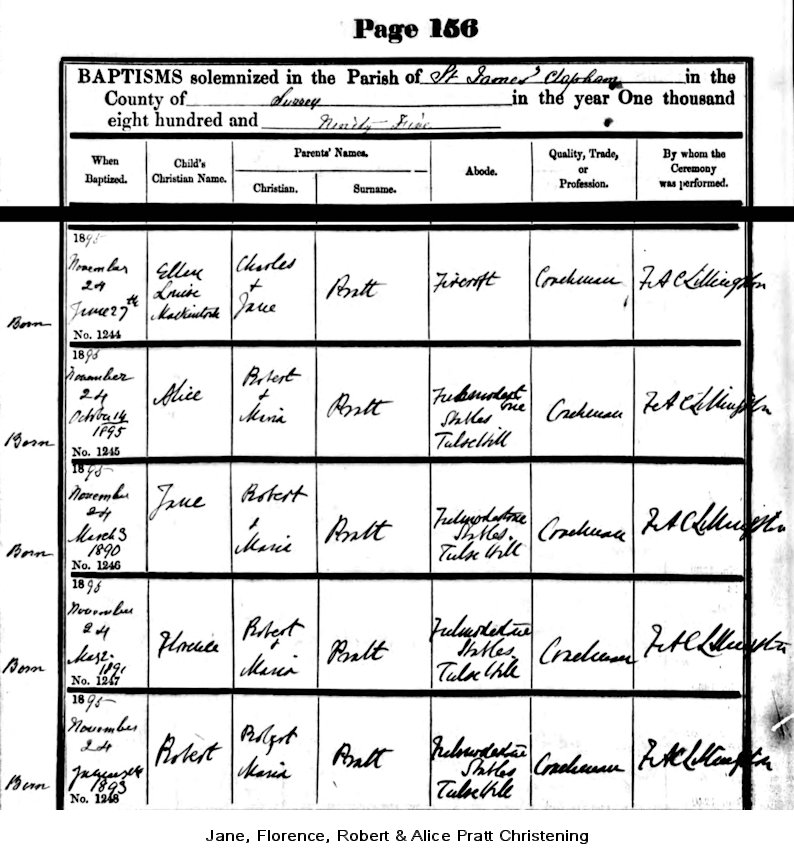 Page 156
BAPTISMS solemnized in the Parish of St James' Clapham in the
County of Surrey in the year One thousand
eight hundred and Ninety Five
When Baptized.
Child's Christian Name.
Parents' Names.
Christian.
Surname.
Abode.
Quality, Trade, or Profession.
By whom the Ceremony was performed.
1895
November
24
Born June 27th
No. 1244
Ellen
Louise
Mackintosh
Charles
+
Jane
Pratt
Firecroft
Coachman
F A C Lillingston
1895
November
24
Born October 14
1895
No. 1245
Alice
Robert
+
Maria
Pratt
Fulmodestone
Stables
Tulse Hill
Coachman
F A C Lillingston
1895
November
24
Born March 3
1890
No. 1246
Jane
Robert
+
Maria
Pratt
Fulmodestone
Stables.
Tulse Hill
Coachman
F A C Lillingston
1895
November
24
Born
1891
No. 1247
Florence
Robert
+
Maria
Pratt
Fulmodestone
Stables
Tulse Hill
Coachman
F A C Lillingston
1895
November
24
Born
1893
No. 1248
Robert
Robert
+
Maria
Pratt
Fulmodestone
Stables
Tulse Hill
Coachman
F A C Lillingston
Jane, Florence, Robert & Alice Pratt Christening